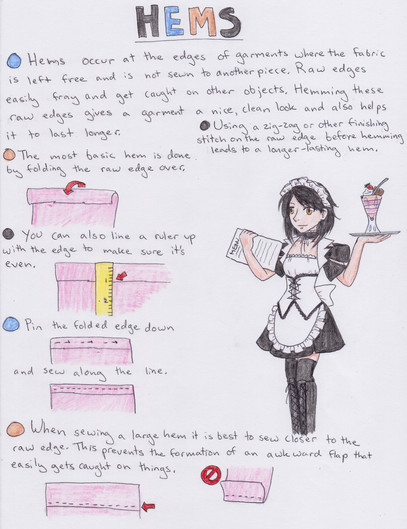 HEMS
Hems occur at the edges of garments where the fabric
is left free and is not sewn to another piece. Raw edges
easily fray and get caught on other objects. Hemming these
raw edges gives a garment a nice, clean look and also helps
it to last longer.
Using a zig-zag or other finishing
stitch on the raw edge before hemming
lends to a longer-lasting hem.
The most basic hem is done
by folding the raw edge over.
You can also line a ruler up
with the edge to make sure it's
even.
MENU
Pin the folded edge down
and sew along the line.
When sewing a large hem it is best to sew closer to the
raw edge. This prevents the formation of an awkward flap that
easily gets caught on things.